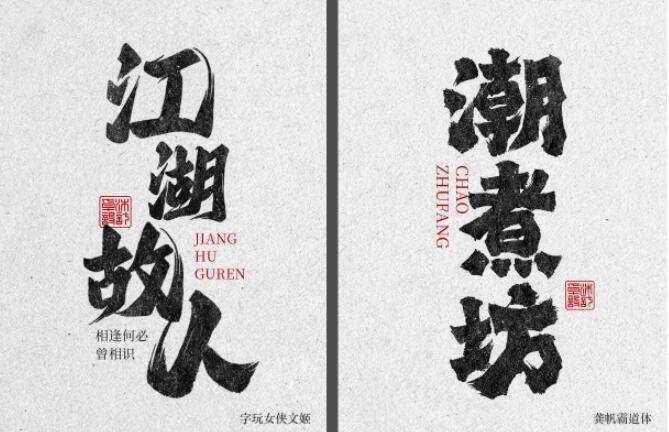 江湖故人
JIANG
HU
GUREN
相逢何必
曾相识
字玩女侠文姬
潮煮坊
CHAO
ZHUFANG
龚帆霸道体